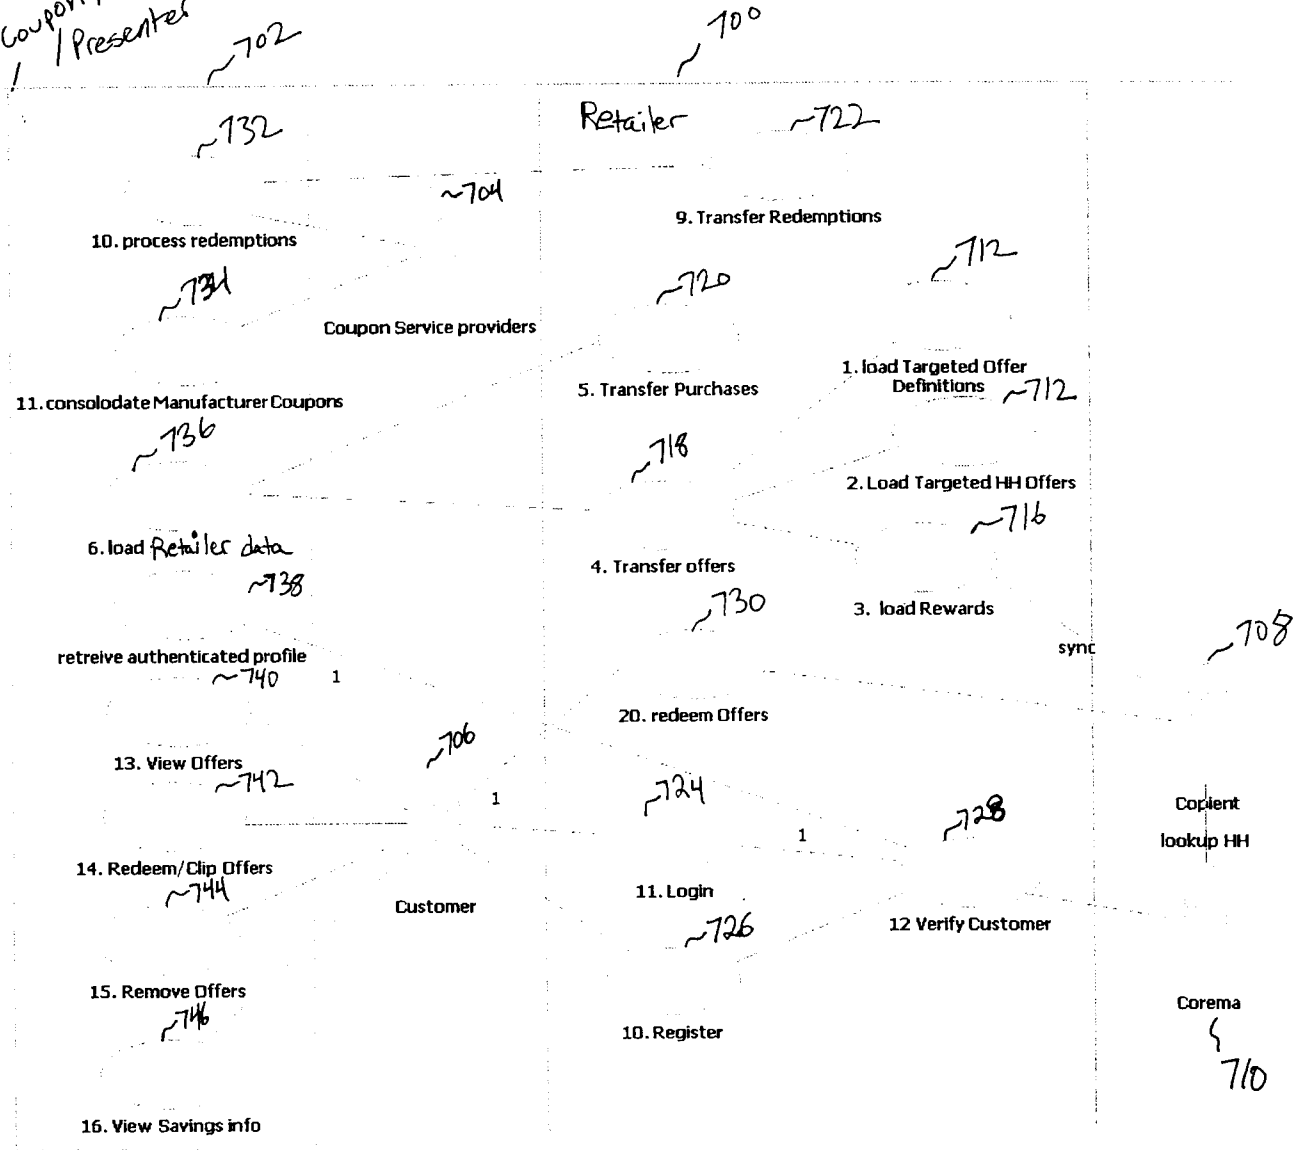 Coupon
/Presenter
702
700
732
Retailer
722
704
9. Transfer Redemptions
10. process redemptions
712
734
720
Coupon Service providers
1. load Targeted Offer
Definitions
712
5. Transfer Purchases
11. consolodate Manufacturer Coupons
736
718
2. Load Targeted HH Offers
716
6. load Retailer data
4. Transfer offers
738
730
3. load Rewards
708
sync
retreive authenticated profile
740
1
20. redeem Offers
706
13. View Offers
742
724
1
728
Copient
1
lookup HH
14. Redeem/Clip Offers
744
11. Login
Customer
726
12 Verify Customer
15. Remove Offers
746
Corema
10. Register
710
16. View Savings info